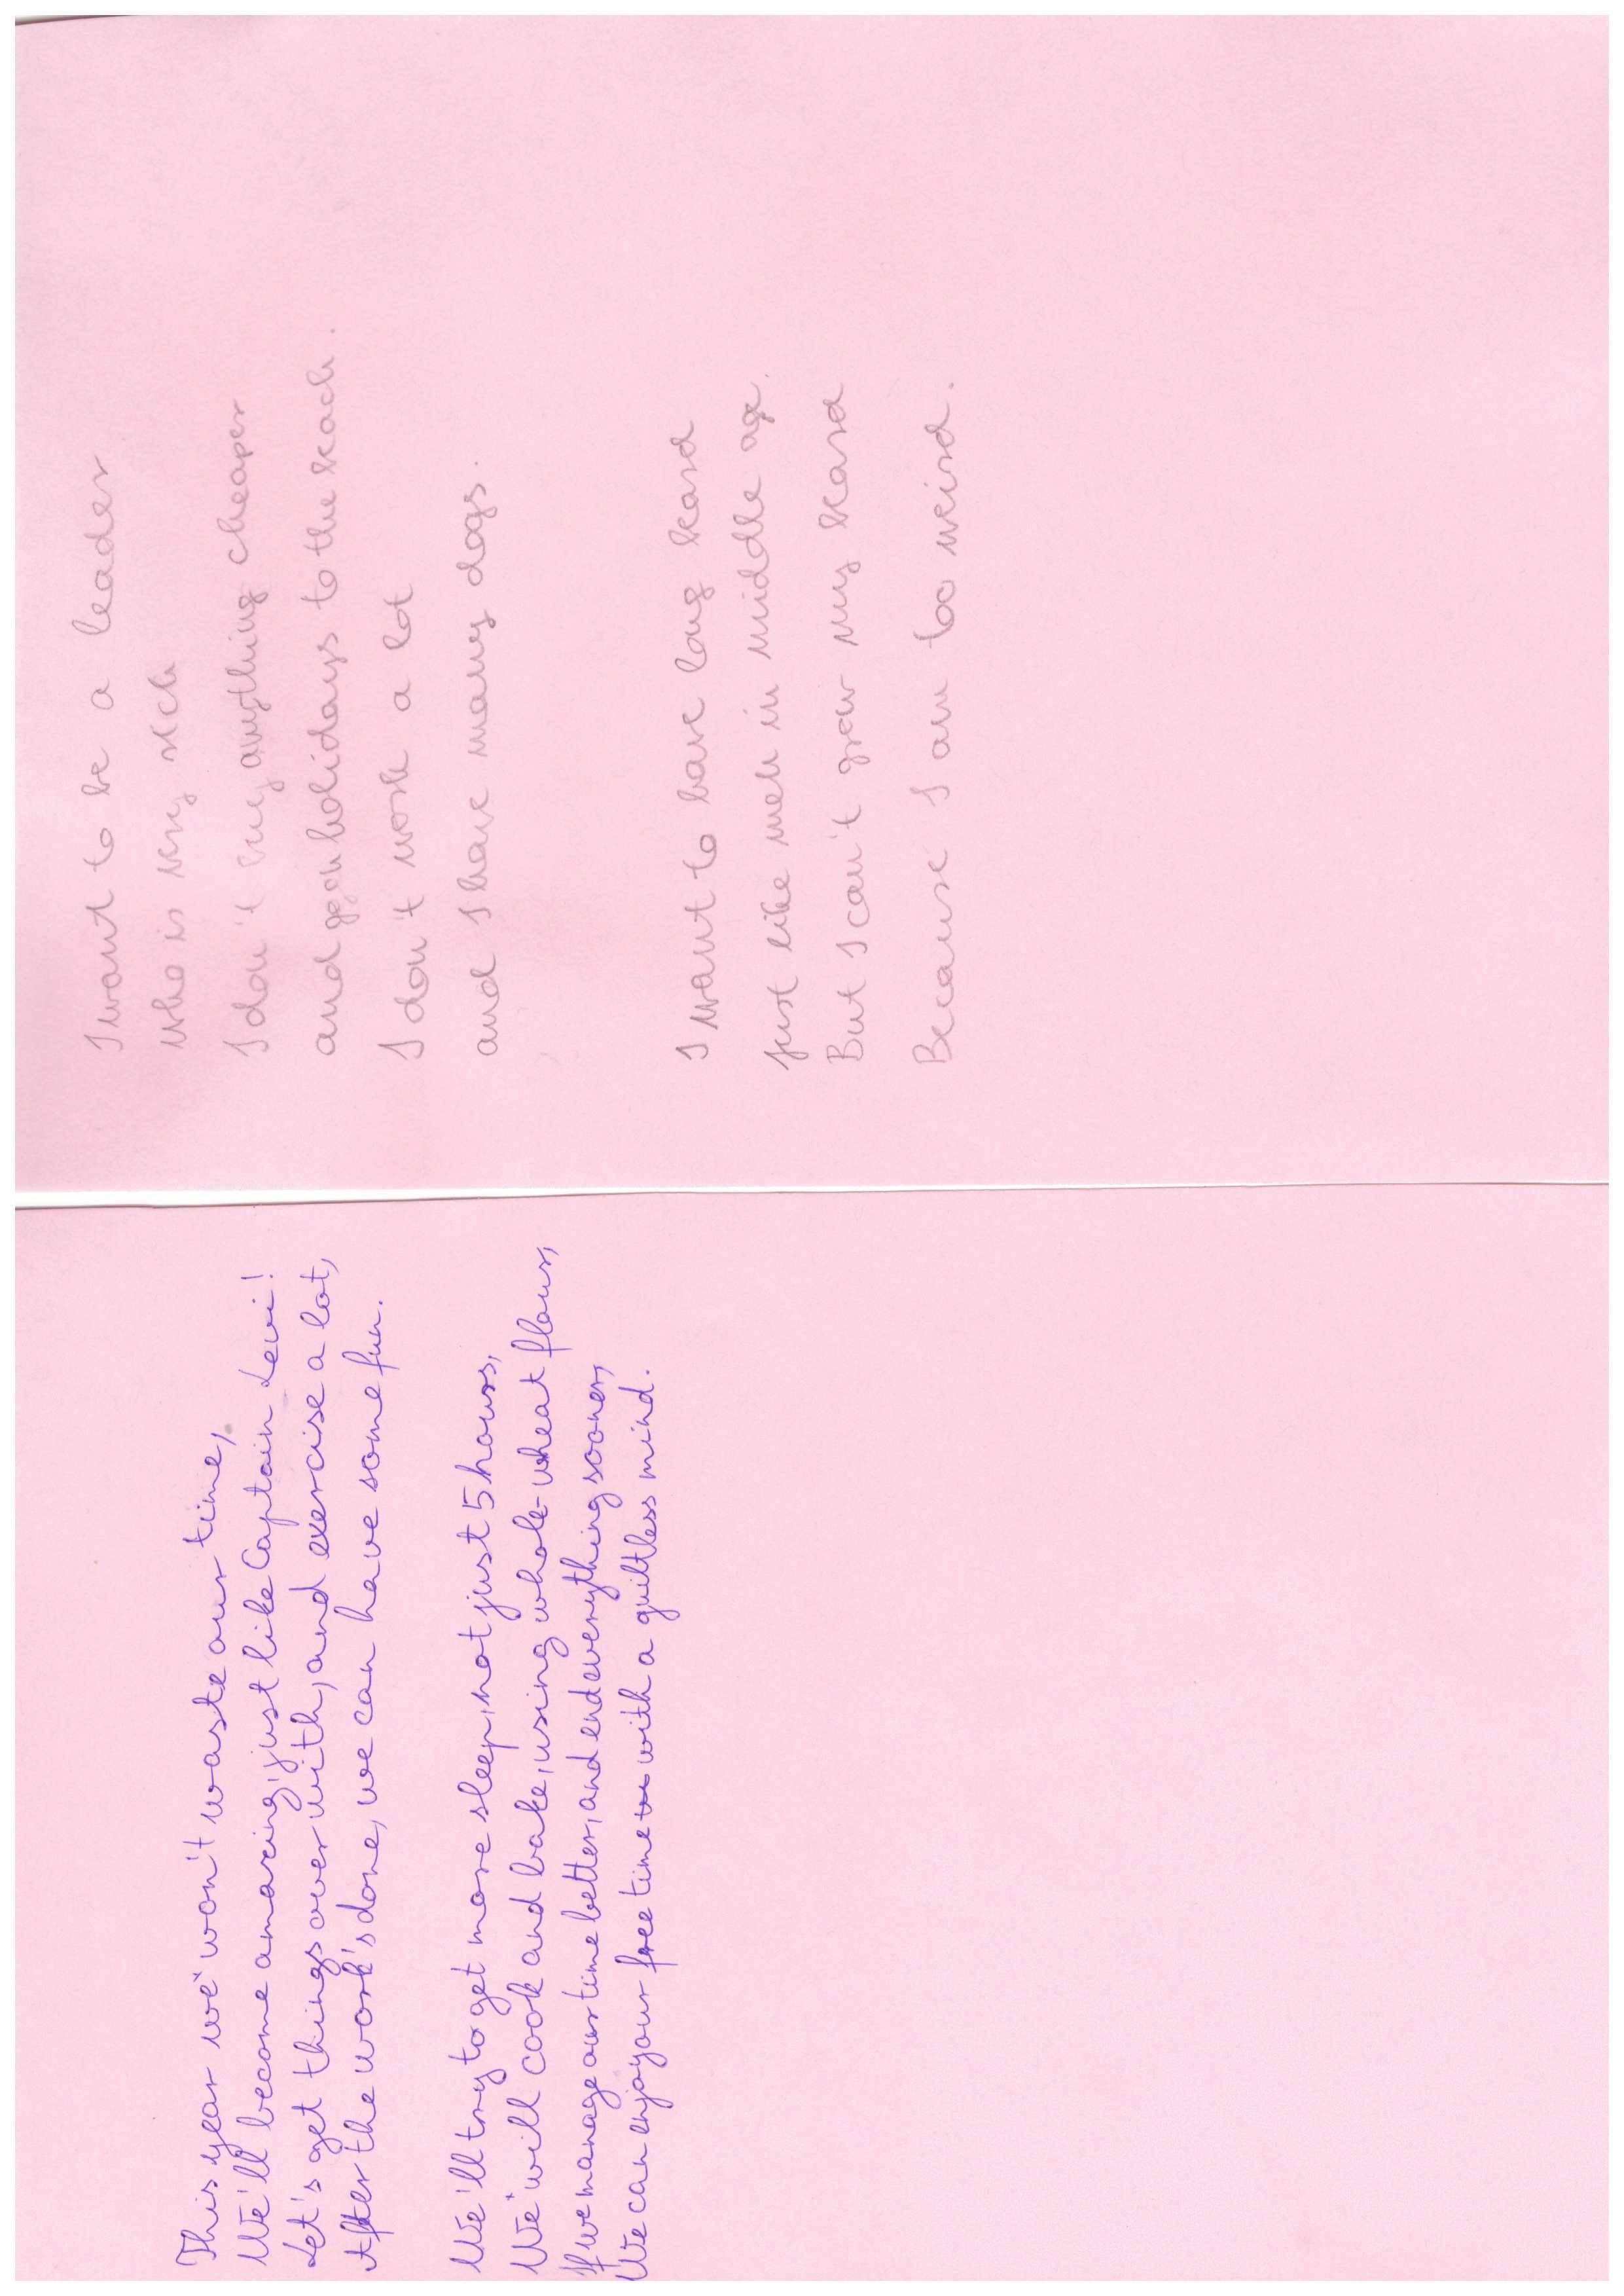 This year we won't waste our time,
We'll become amazing, just like Captain Levi!
Let's get things over with, and exercise a lot,
After the work's done, we can have some fun.
We'll try to get more sleep, not just 5 hours,
We will cook and bake, using whole-wheat flour,
If we manage our time better, and end everything sooner,
We can enjoy our free time with a guiltless mind.
I want to be a leader
who is very rich
I don't buy anything cheaper
and holidays to the beach.
I don't work a lot
and I have many dogs.
I want to have long beard
just like men in middle age.
But I can't grow my beard
Because I am too weird.